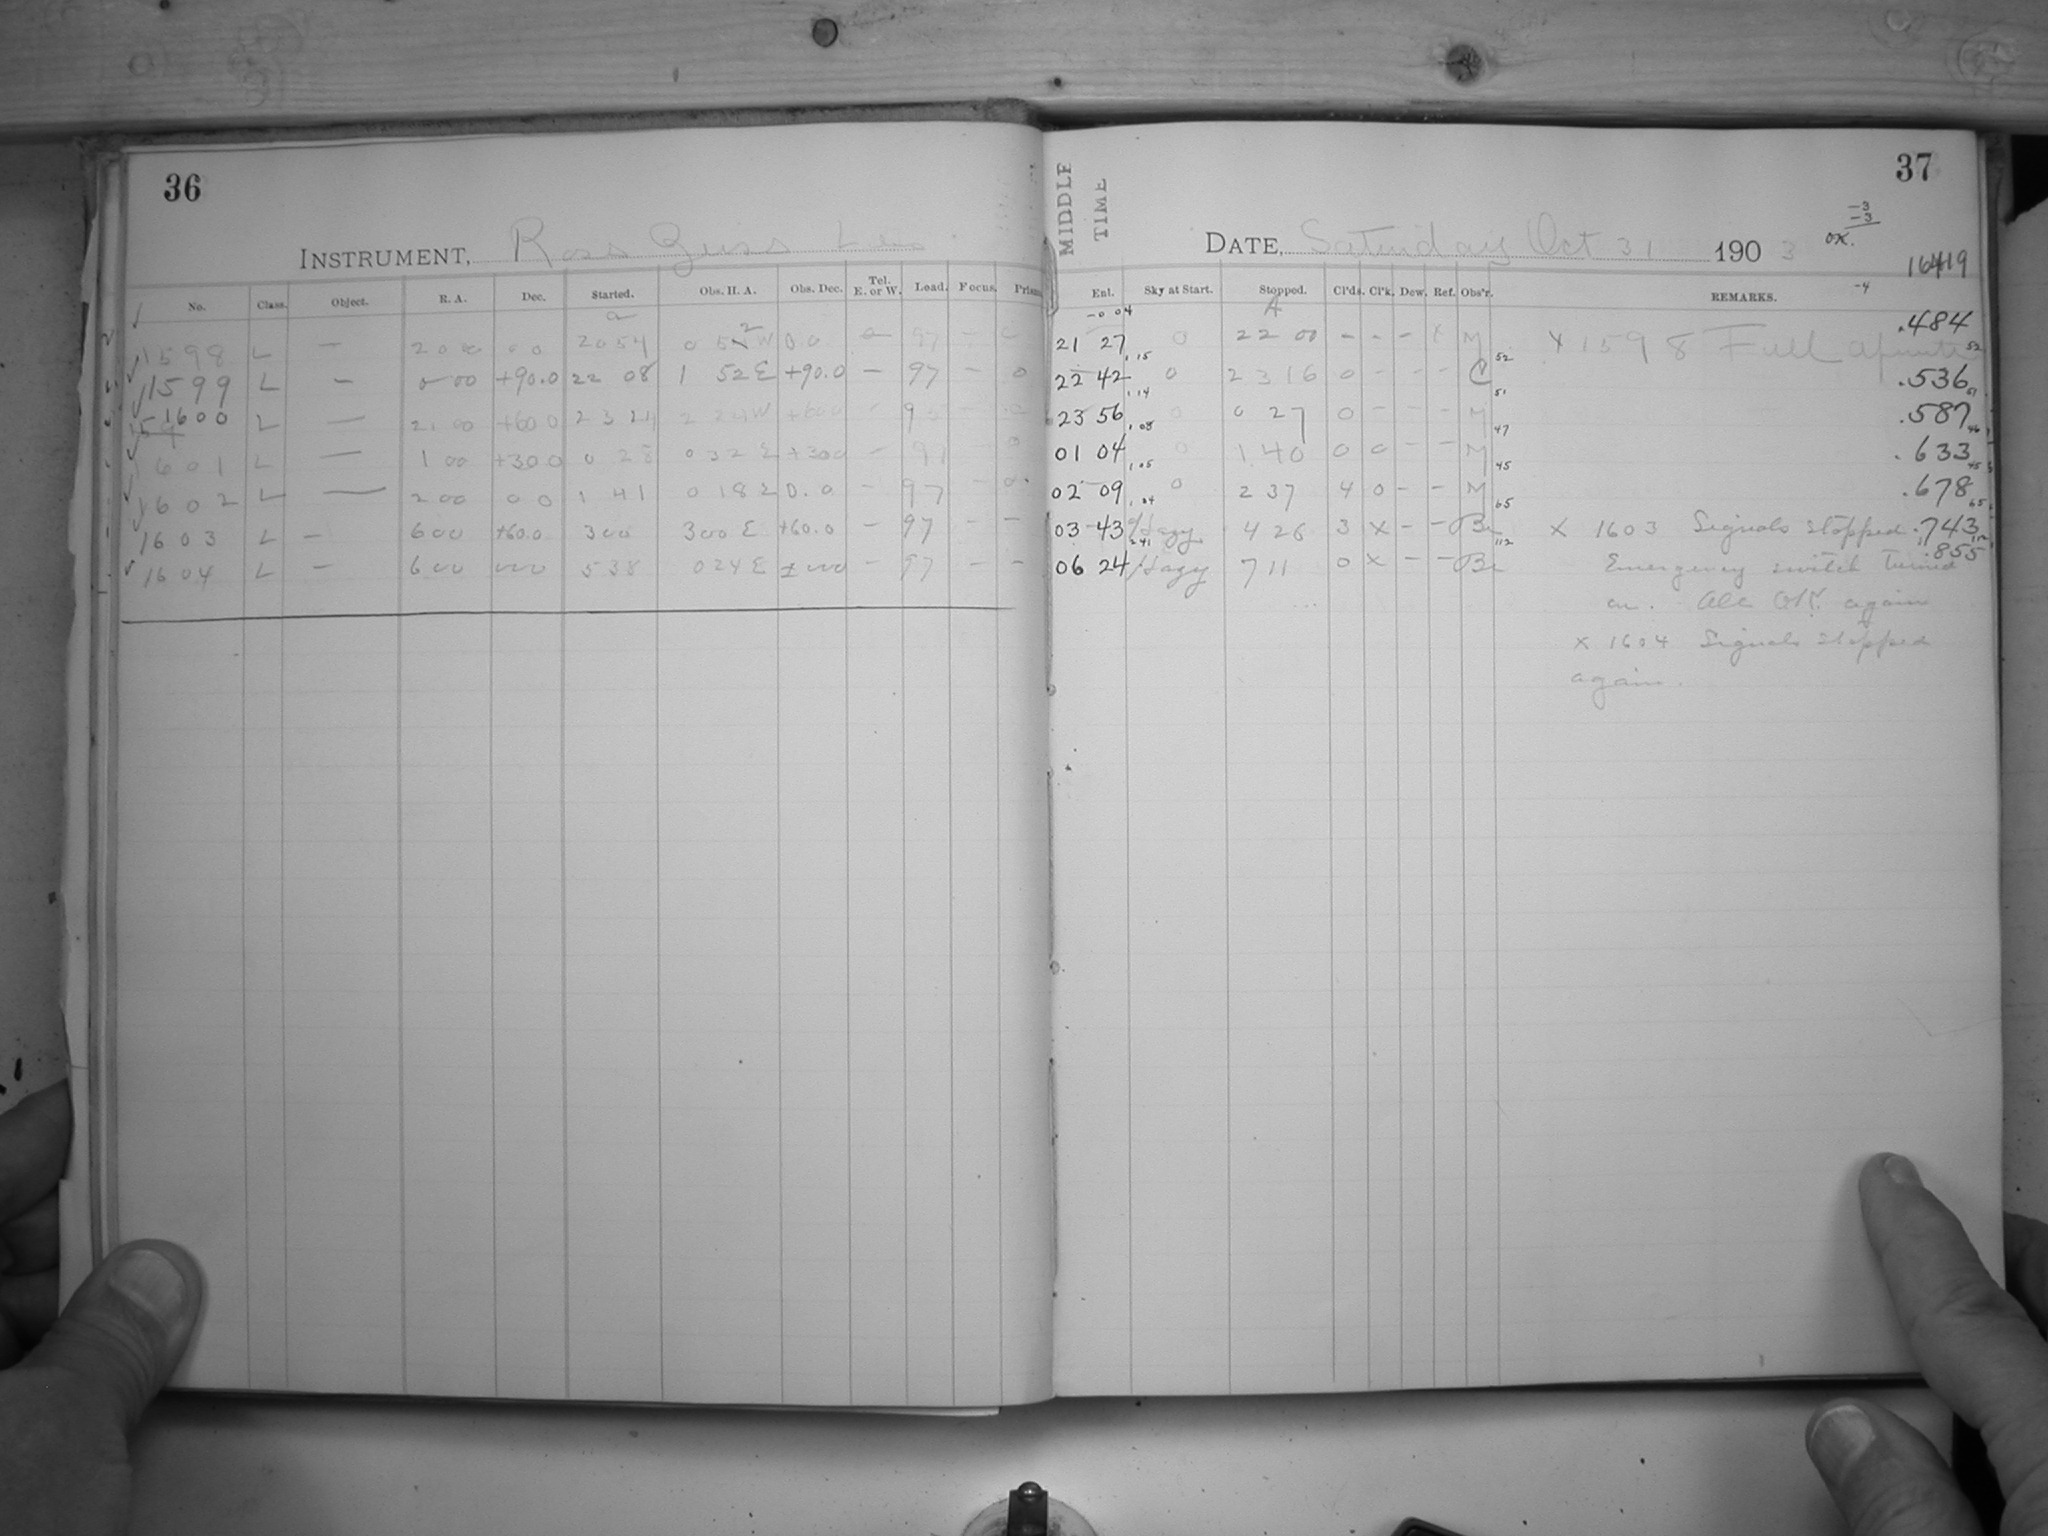 36
INSTRUMENT, Ross Zeiss Lens
No. Class. Object. R. A. Dec. Started. Obs. H. A. Obs. Dec. Tel. E. or W. Load. Focus. Prism
1598 L — 20 00 0 0 20 54 0 W 0.0 97 —
1599 L — 0 00 +90.0 22 08 1 52 E +90.0 — 97 — 0
1600 L — 21 00 +60.0 23 24 2 24 W +60.0 —
1601 L — 1 00 +30.0 0 28 0 32 E +30.0 — 97 0
1602 L — 2 00 0 0 1 41 0 18 E 0.0 — 97 —
1603 L — 6 00 +60.0 3 00 3 00 E +60.0 — 97 — —
1604 L — 6 00 5 38 0 24 E — 97 — —
MIDDLE
TIME
37
-3
-3
OK.
DATE, Saturday Oct 31 1903
16419
-4
Ent. Sky at Start. Stopped. Cl'ds. Cl'k. Dew. Ref. Obs'r. REMARKS.
-0 04 A
21 27 0 22 00 - - - M x 1598 Full .484
1.15 52 52
22 42 0 23 16 0 - - - C .536
1.14 51 51
23 56 0 0 27 0 - - - M .587
1.08 47
01 04 0 1 40 0 0 - - M .633
1.05 45 45
02 09 0 2 37 4 0 - - M .678
65 65
03 43 Hazy 4 26 3 x - - Be x 1603 Signals stopped .743
2 41 112 112
06 24 Hazy 7 11 0 x - - Be Emergency switch turned .855
on. All O.K. again
x 1604 Signals stopped
again.